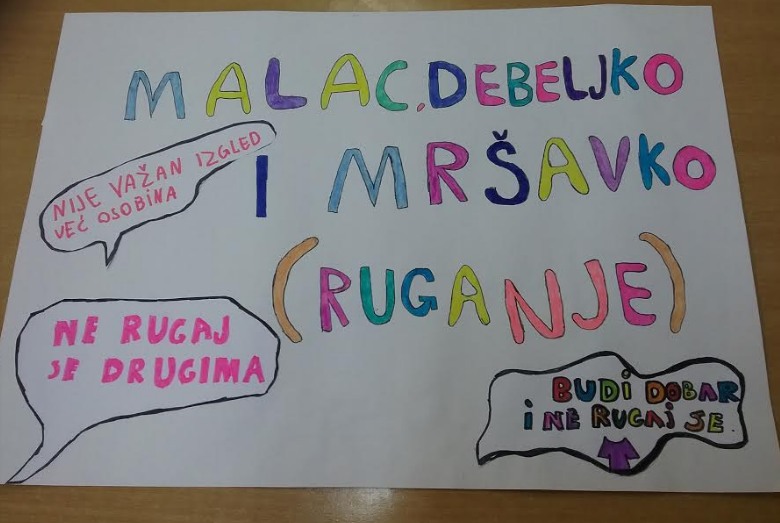 MALAC, DEBELJKO
I MRŠAVKO
(RUGANJE)
NIJE VAŽAN IZGLED
VEĆ OSOBINA
NE RUGAJ
SE DRUGIMA
BUDI DOBAR
i NE RUGAJ SE